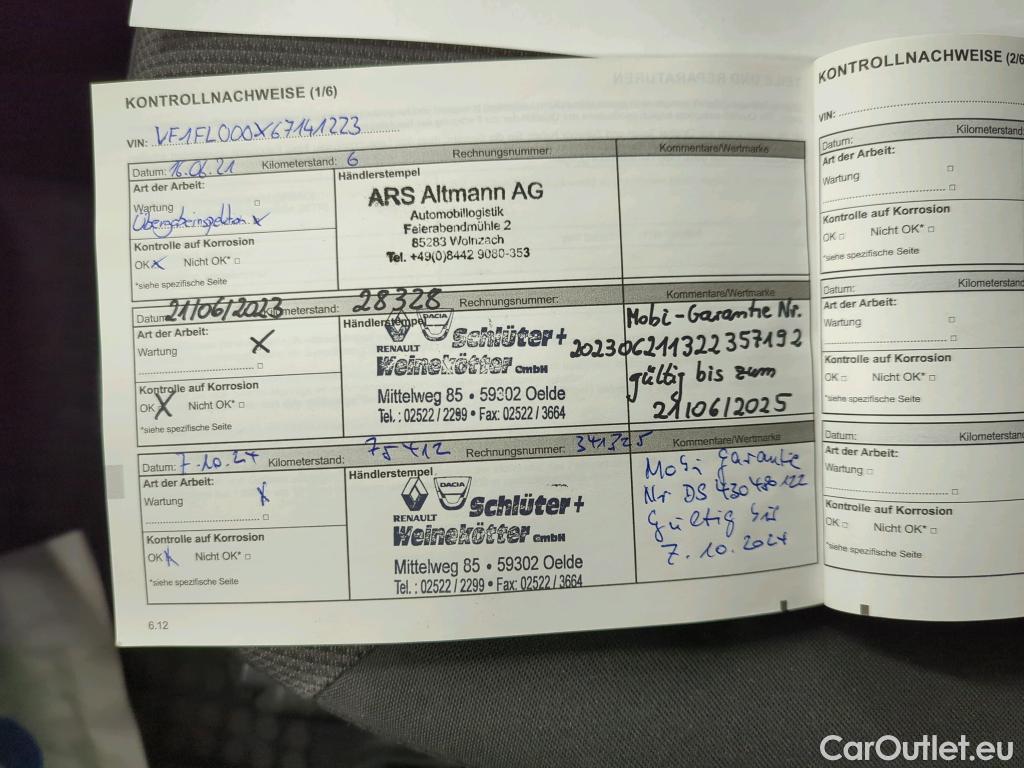 KONTROLLNACHWEISE (1/6)
VIN: VF1FL000X67141223
Datum: 16.06.21 Kilometerstand: 6 Rechnungsnummer:
Kommentare/Wertmarke
Art der Arbeit:
Wartung
Übergabeinspektion x
Kontrolle auf Korrosion
OK x Nicht OK* □
*siehe spezifische Seite
Händlerstempel
ARS Altmann AG
Automobillogistik
Feierabendmühle 2
85283 Wolnzach
Tel. +49(0)8442 9080-353
Datum: 21/06/2023 Kilometerstand: 28328 Rechnungsnummer:
Kommentare/Wertmarke
Art der Arbeit:
Wartung X
Kontrolle auf Korrosion
OK X Nicht OK* □
*siehe spezifische Seite
Händlerstempel
RENAULT
DACIA
Schlüter+
Weinekötter GmbH
Mittelweg 85 • 59302 Oelde
Tel.: 02522 / 2299 • Fax: 02522 / 3664
Mobi-Garantie Nr.
20230621132235 7192
gültig bis zum
21/06/2025
Datum: 7.10.24 Kilometerstand: 75412 Rechnungsnummer: 341325
Kommentare/Wertmarke
Art der Arbeit:
Wartung x
Kontrolle auf Korrosion
OK x Nicht OK* □
*siehe spezifische Seite
Händlerstempel
RENAULT
DACIA
Schlüter+
Weinekötter GmbH
Mittelweg 85 • 59302 Oelde
Tel.: 02522 / 2299 • Fax: 02522 / 3664
Mobi Garantie
Nr DS 430480122
Gültig bis
7.10.2024
6.12
KONTROLLNACHWEISE (2/6
VIN:
Datum:
Kilometerstand
Art der Arbeit:
Wartung □
Kontrolle auf Korrosion
OK □ Nicht OK* □
*siehe spezifische Seite
Datum:
Kilometerstand
Art der Arbeit:
Wartung □
Kontrolle auf Korrosion
OK □ Nicht OK* □
*siehe spezifische Seite
Datum:
Kilometerstand
Art der Arbeit:
Wartung □
Kontrolle auf Korrosion
OK □ Nicht OK* □
*siehe spezifische Seite
CarOutlet.eu